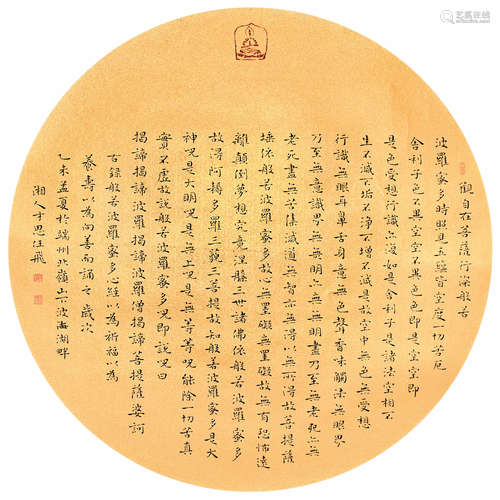 觀自在菩薩行深般若
波羅蜜多時照見五蘊皆空度一切苦厄
舍利子色不異空空不異色色即是空空即
是色受想行識亦復如是舍利子是諸法空相不
生不滅不垢不淨不增不減是故空中無色無受想
行識無眼耳鼻舌身意無色聲香味觸法無眼界
乃至無意識界無無明亦無無明盡乃至無老死亦無
老死盡無苦集滅道無智亦無得以無所得故菩提薩
埵依般若波羅蜜多故心無罣礙無罣礙故無有恐怖遠
離顛倒夢想究竟涅槃三世諸佛依般若波羅蜜多
故得阿耨多羅三藐三菩提故知般若波羅蜜多是大
神呪是大明呪是無上呪是無等等呪能除一切苦真
實不虛故說般若波羅蜜多呪即說呪曰
揭諦揭諦波羅揭諦波羅僧揭諦菩提薩婆訶
右錄般若波羅蜜多心經以為祈福以為
養壽以為向善而誦之 歲次
乙未孟夏於端州北嶺山下波海湖畔
湘人才思任飛
艺狐在线
artfoxlive.com